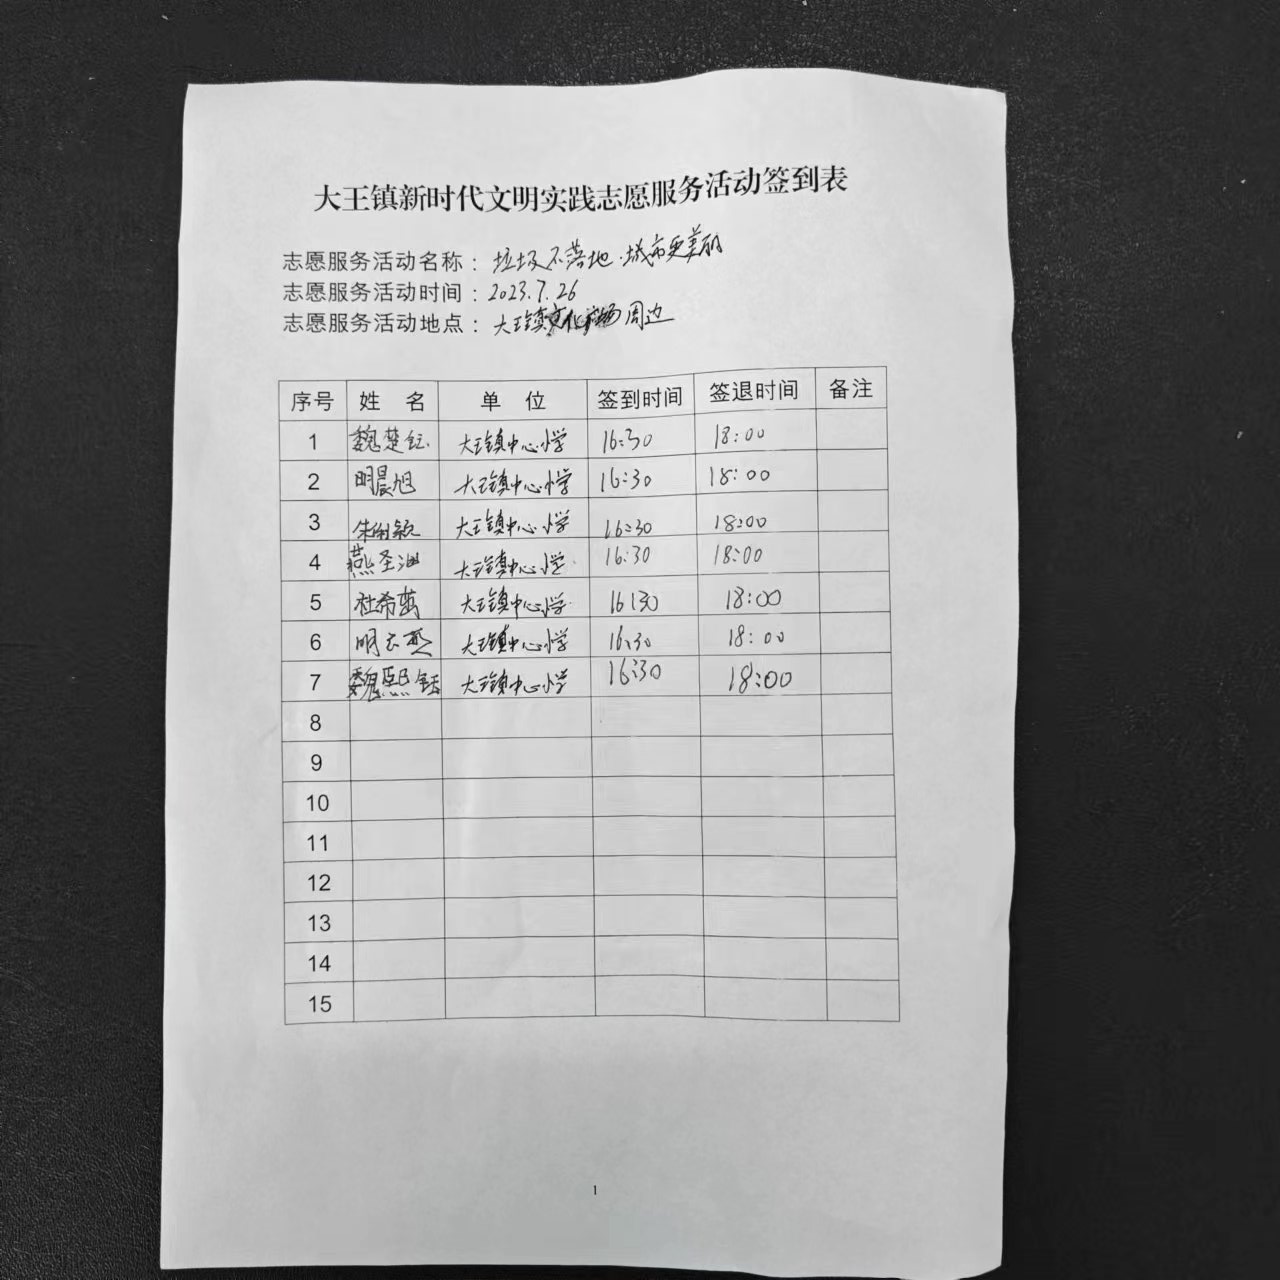 大王镇新时代文明实践志愿服务活动签到表
志愿服务活动名称：垃圾不落地·城市更美丽
志愿服务活动时间：2023.7.26
志愿服务活动地点：大王镇文化广场周边
序号 姓 名 单 位 签到时间 签退时间 备注
1 魏楚钰 大王镇中心小学 16:30 18:00
2 明晨旭 大王镇中心小学 16:30 18:00
3 大王镇中心小学 16:30 18:00
4 燕圣 大王镇中心小学 16:30 18:00
5 杜希 大王镇中心小学 16:30 18:00
6 明 大王镇中心小学 16:30 18:00
7 魏熙钰 大王镇中心小学 16:30 18:00
8
9
10
11
12
13
14
15
1